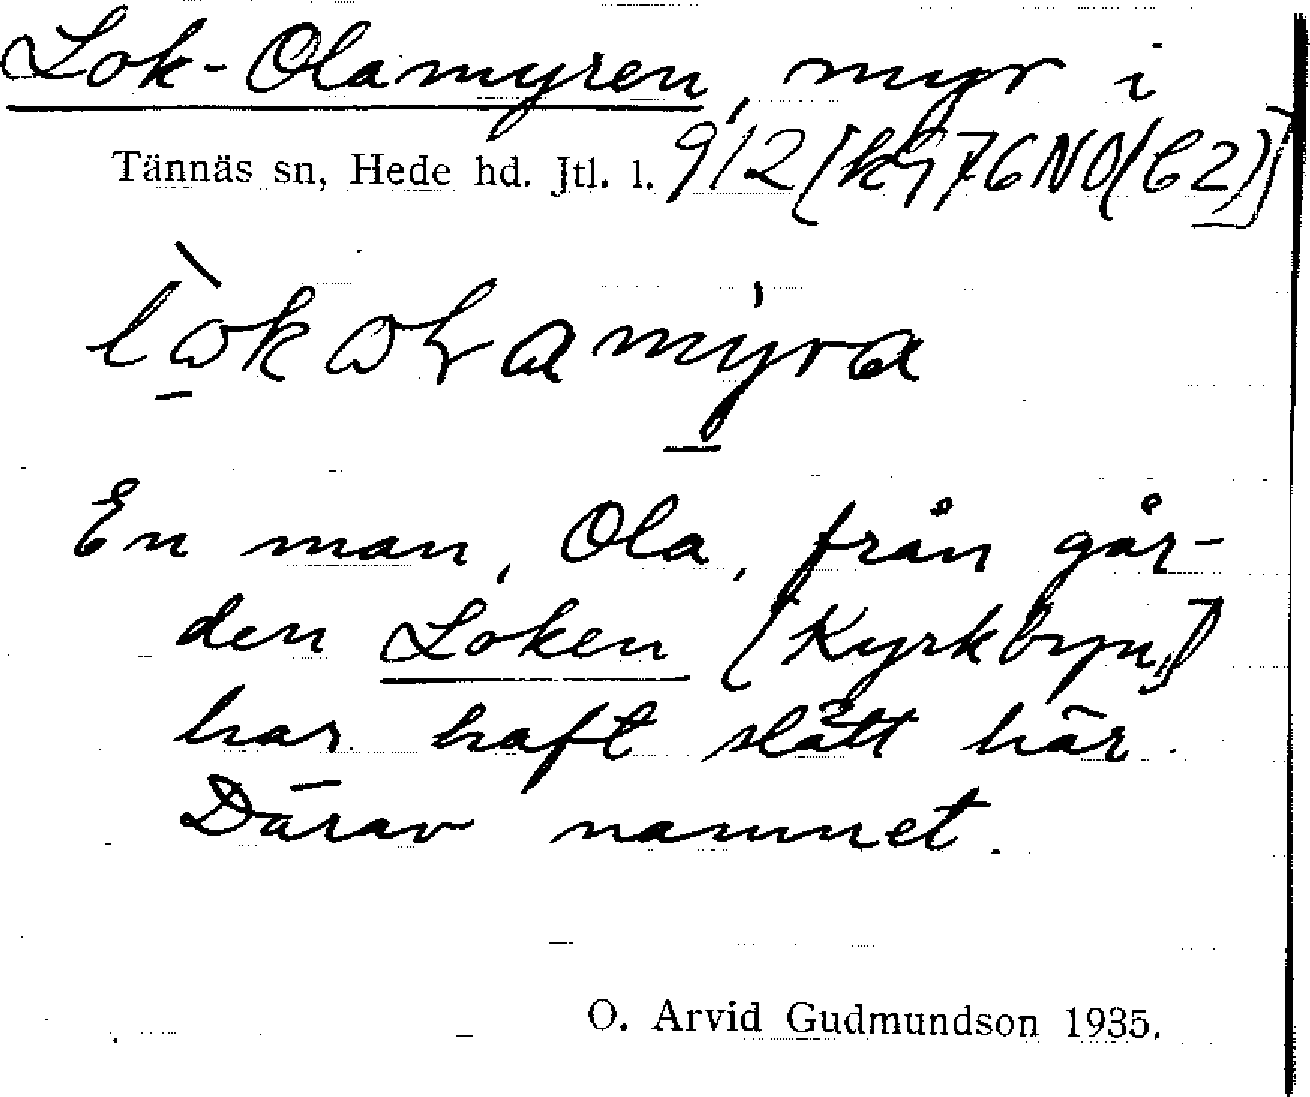 Lok-Olamyren, myr i
Tännäs sn, Hede hd. Jtl. l. 912 [k976NO(C2)]
En man, Ola, från går-
den Loken [Kyrkbyn,]
har haft slått här.
Därav namnet.
O. Arvid Gudmundson 1935.